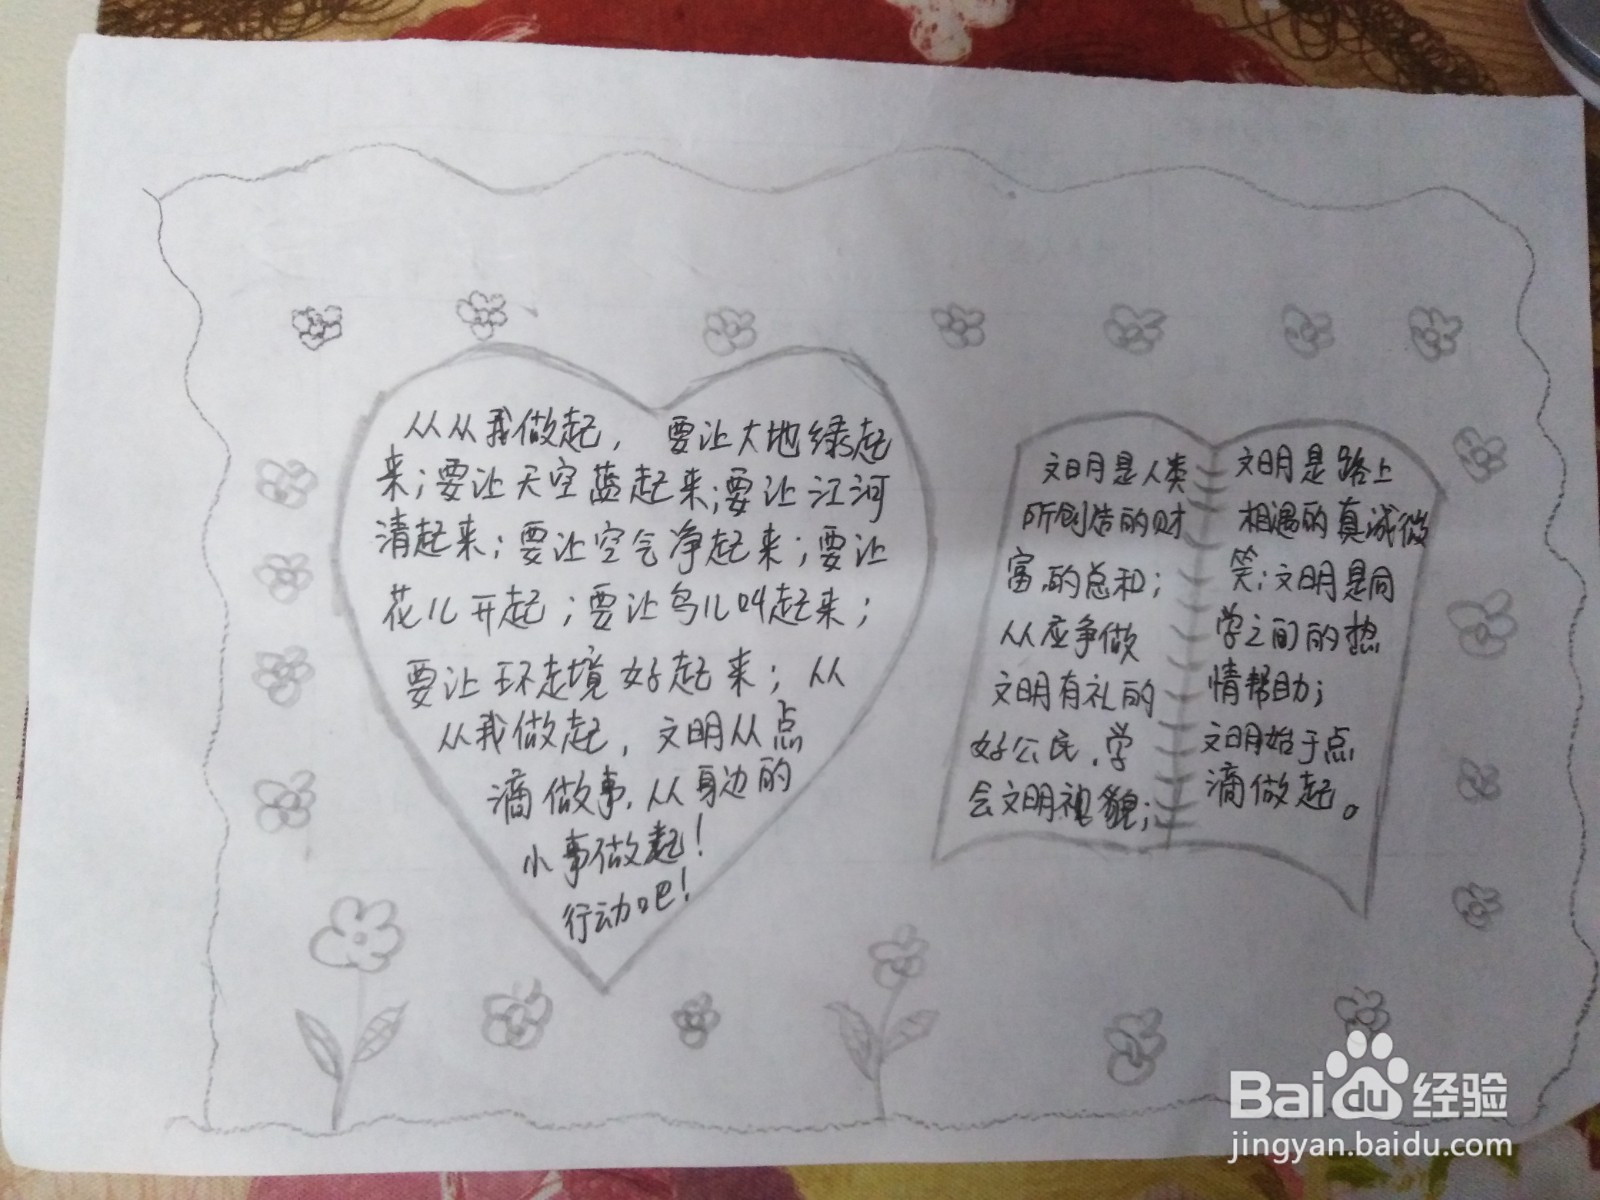 从从我做起，要让大地绿起
来；要让天空蓝起来；要让江河
清起来；要让空气净起来；要让
花儿开起；要让鸟儿叫起来；
要让环境好起来；从
从我做起，文明从点
滴做事，从身边的
小事做起！
行动吧！
文明是人类
所创造的财
富的总和；
从应争做
文明有礼的
好公民，学
会文明礼貌；
文明是路上
相遇的真诚微
笑；文明是同
学之间的热
情帮助；
文明始于点
滴做起。
Baidu经验
jingyan.baidu.com